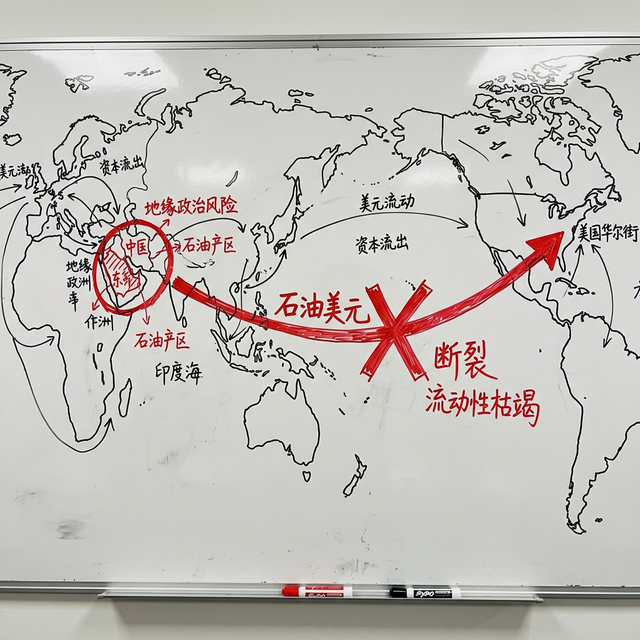 美元流动
资本流出
地缘政治风险
中国
石油产区
东
地缘
政洲
率
作洲
石油产区
印度海
美元流动
资本流出
美国华尔街
石油美元
断裂
流动性枯竭
EXPO
EXPO